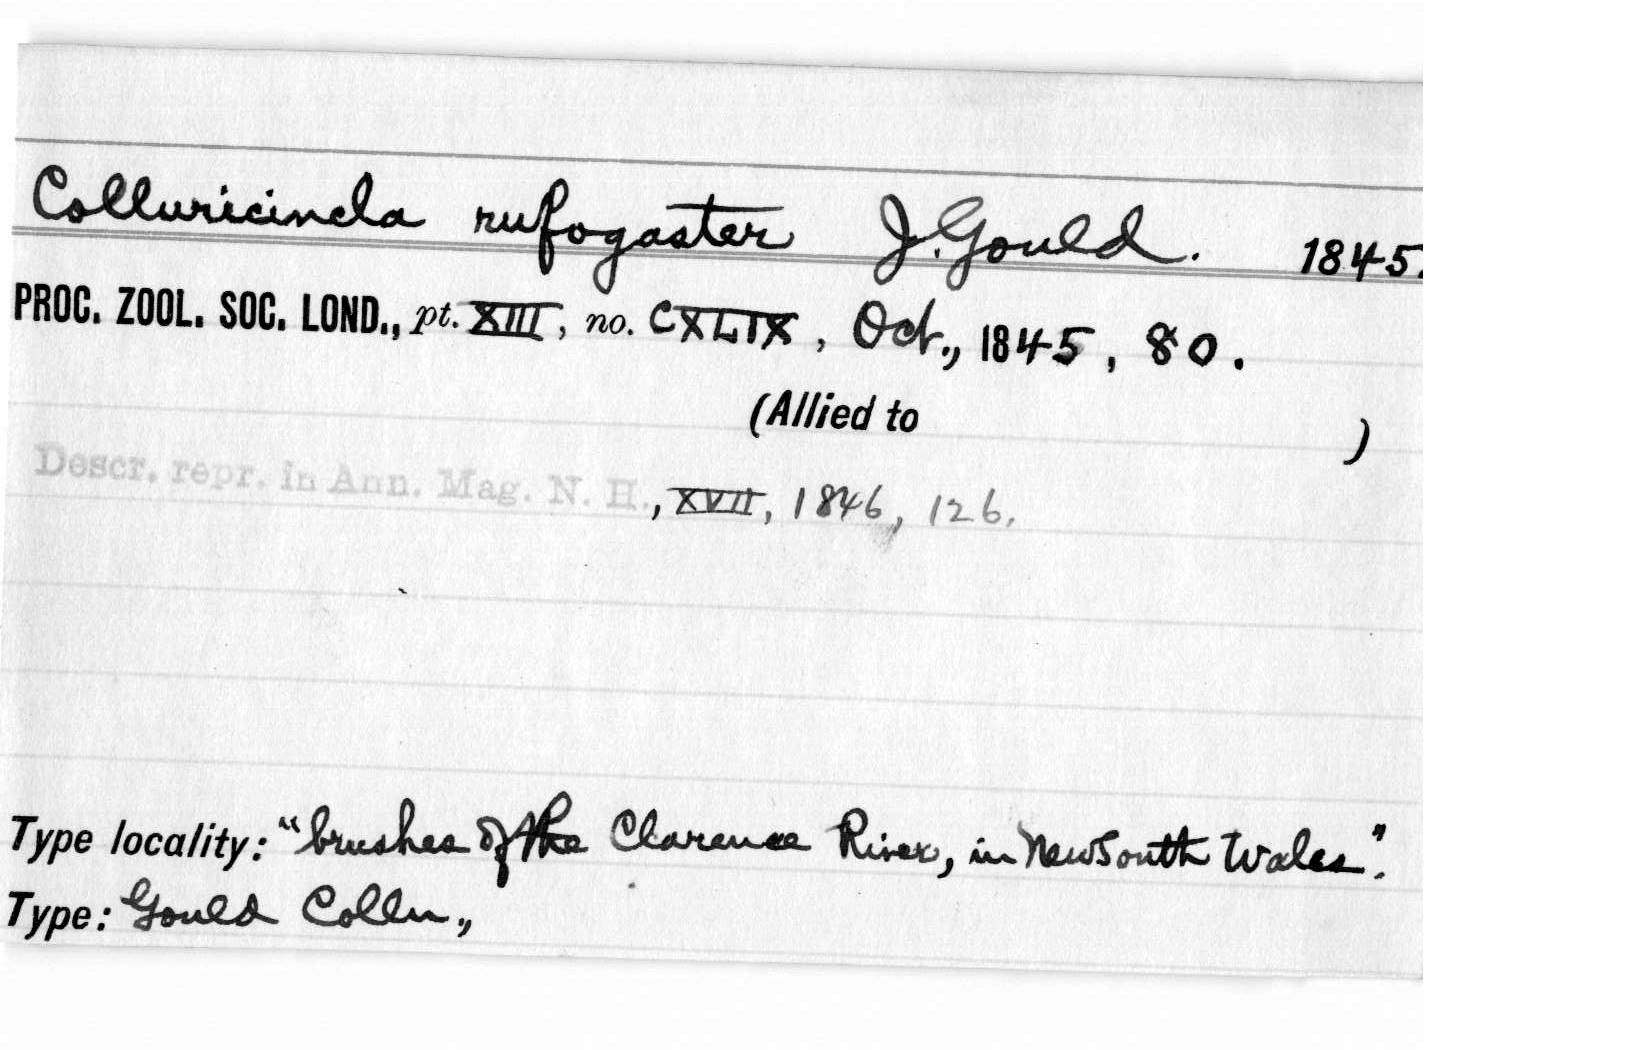 Colluricincla rufogaster J. Gould. 1845.
PROC. ZOOL. SOC. LOND., pt. XIII, no. CXLIX, Oct., 1845, 80.
(Allied to )
Descr. repr. in Ann. Mag. N. H., XVII, 1846, 126.
Type locality: "brushes of the Clarence River, in New South Wales".
Type: Gould Colln.,